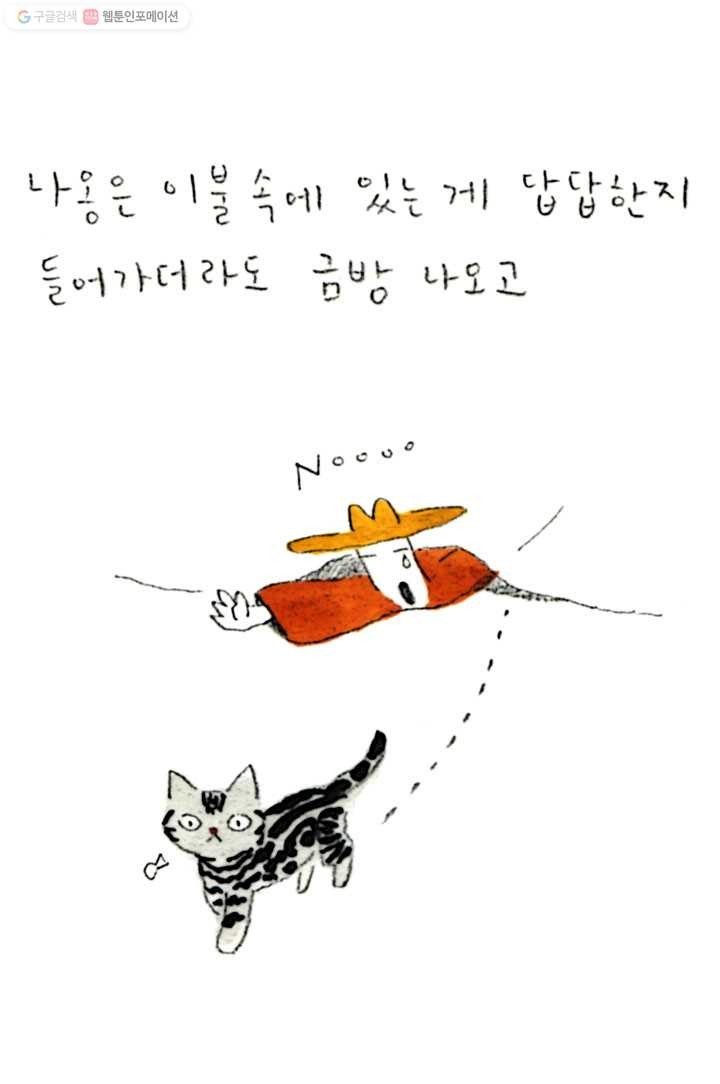 구글검색 웹툰인포메이션
나옹은 이불속에 있는게 답답한지
들어가더라도 금방 나오고
Noooo